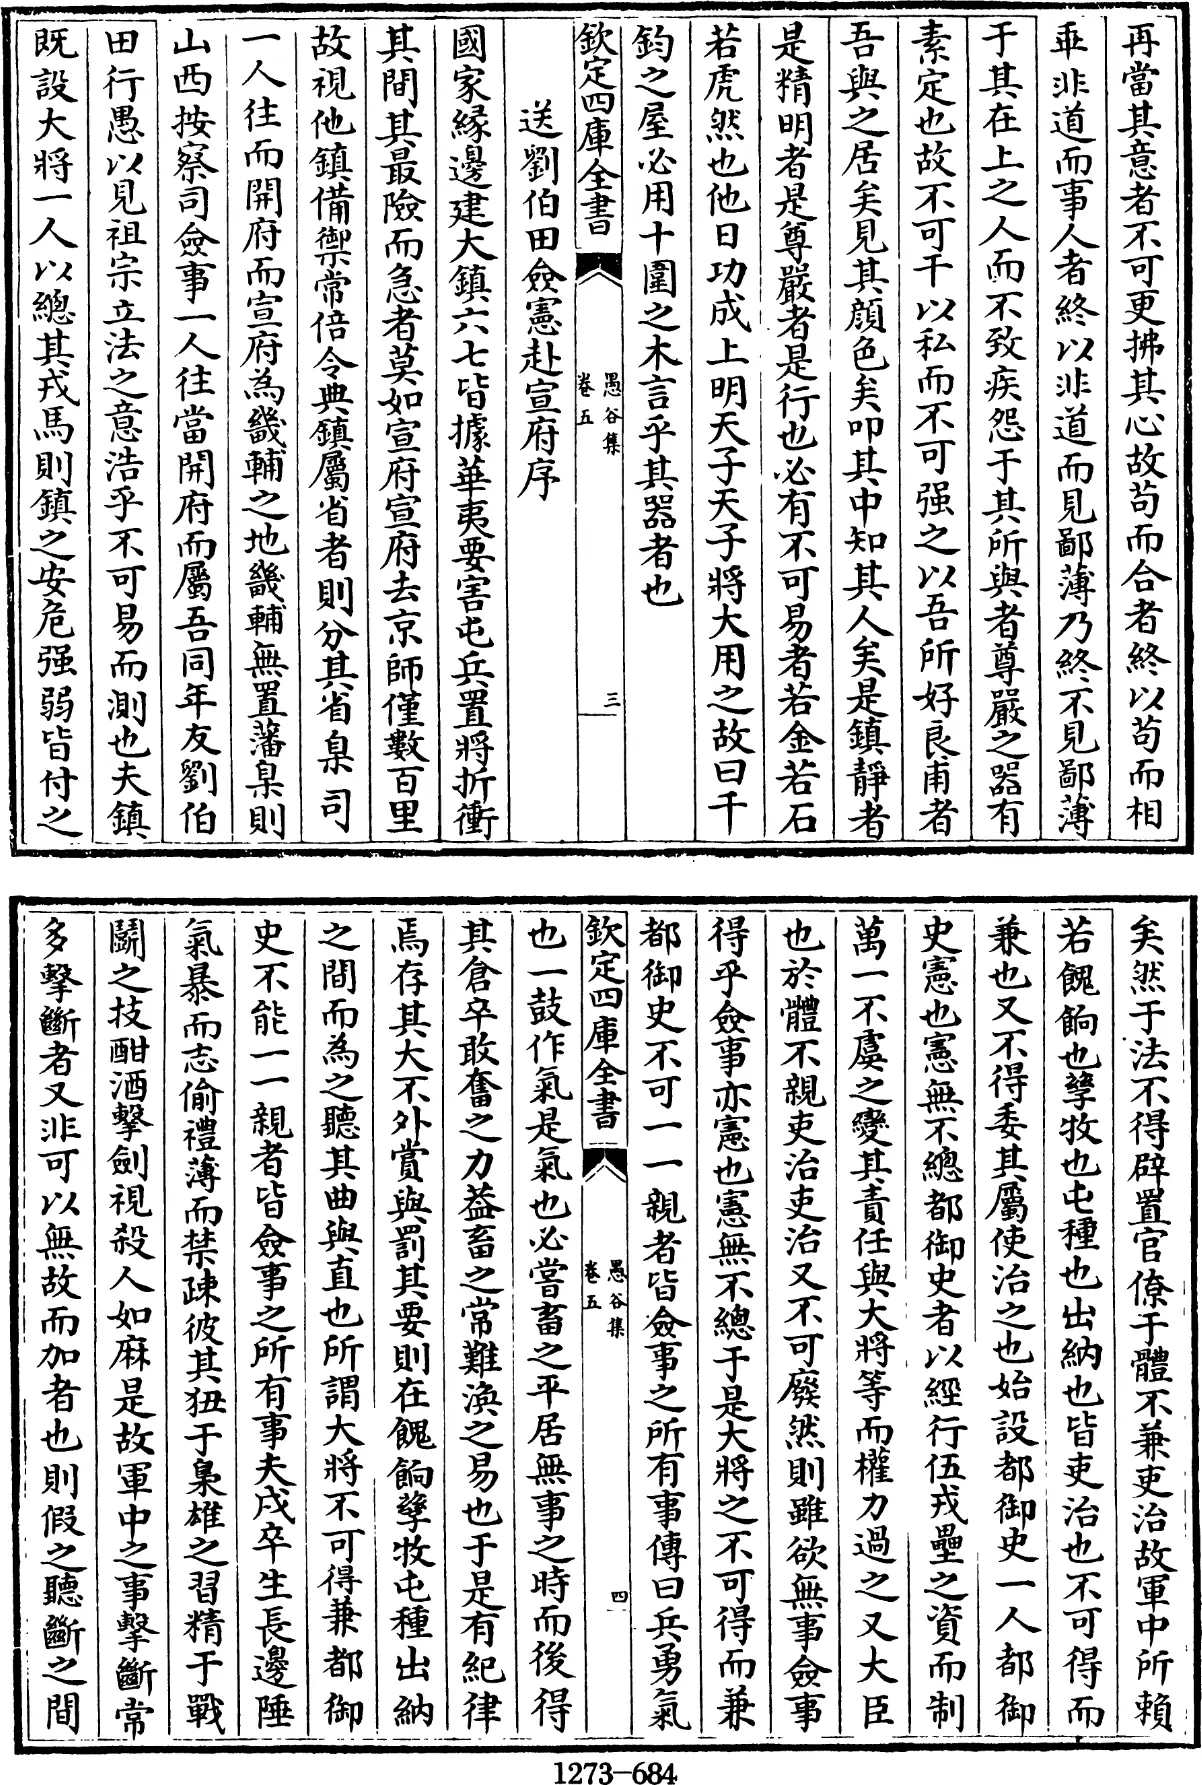 再當其意者不可更拂其心故苟而合者終以苟而相
乖非道而事人者終以非道而見鄙薄乃終不見鄙薄
于其在上之人而不致疾怨于其所與者尊嚴之器有
素定也故不可干以私而不可强之以吾所好良甫者
吾與之居矣見其顔色矣叩其中知其人矣是鎮靜者
是精明者是尊嚴者是行也必有不可易者若金若石
若虎然也他日功成上明天子天子將大用之故曰千
鈞之屋必用十圍之木言乎其器者也
欽定四庫全書
愚谷集
卷五
三
送劉伯田僉憲赴宣府序
國家縁邊建大鎮六七皆據華夷要害屯兵置將折衝
其間其最險而急者莫如宣府宣府去京師僅數百里
故視他鎮備禦常倍令典鎮屬省者則分其省臬司
一人往而開府而宣府為畿輔之地畿輔無置藩臬則
山西按察司僉事一人往當開府而屬吾同年友劉伯
田行愚以見祖宗立法之意浩乎不可易而測也夫鎮
既設大將一人以總其戎馬則鎮之安危强弱皆付之
矣然于法不得辟置官僚于體不兼吏治故軍中所賴
若餽餉也孳牧也屯種也出納也皆吏治也不可得而
兼也又不得委其屬使治之也始設都御史一人都御
史憲也憲無不總都御史者以經行伍戎壘之資而制
萬一不虞之變其責任與大將等而權力過之又大臣
也於體不親吏治吏治又不可廢然則雖欲無事僉事
得乎僉事亦憲也憲無不總于是大將之不可得而兼
都御史不可一一親者皆僉事之所有事傳曰兵勇氣
欽定四庫全書
愚谷集
卷五
四
也一鼓作氣是氣也必當畜之平居無事之時而後得
其倉卒敢奮之力葢畜之常難渙之易也于是有紀律
焉存其大不外賞與罰其要則在餽餉孳牧屯種出納
之間而為之聽其曲與直也所謂大將不可得兼都御
史不能一一親者皆僉事之所有事夫戍卒生長邊陲
氣暴而志偷禮薄而禁疎彼其狃于梟雄之習精于戰
鬭之技酣酒擊劍視殺人如麻是故軍中之事擊斷常
多擊斷者又非可以無故而加者也則假之聽斷之間
1273-684